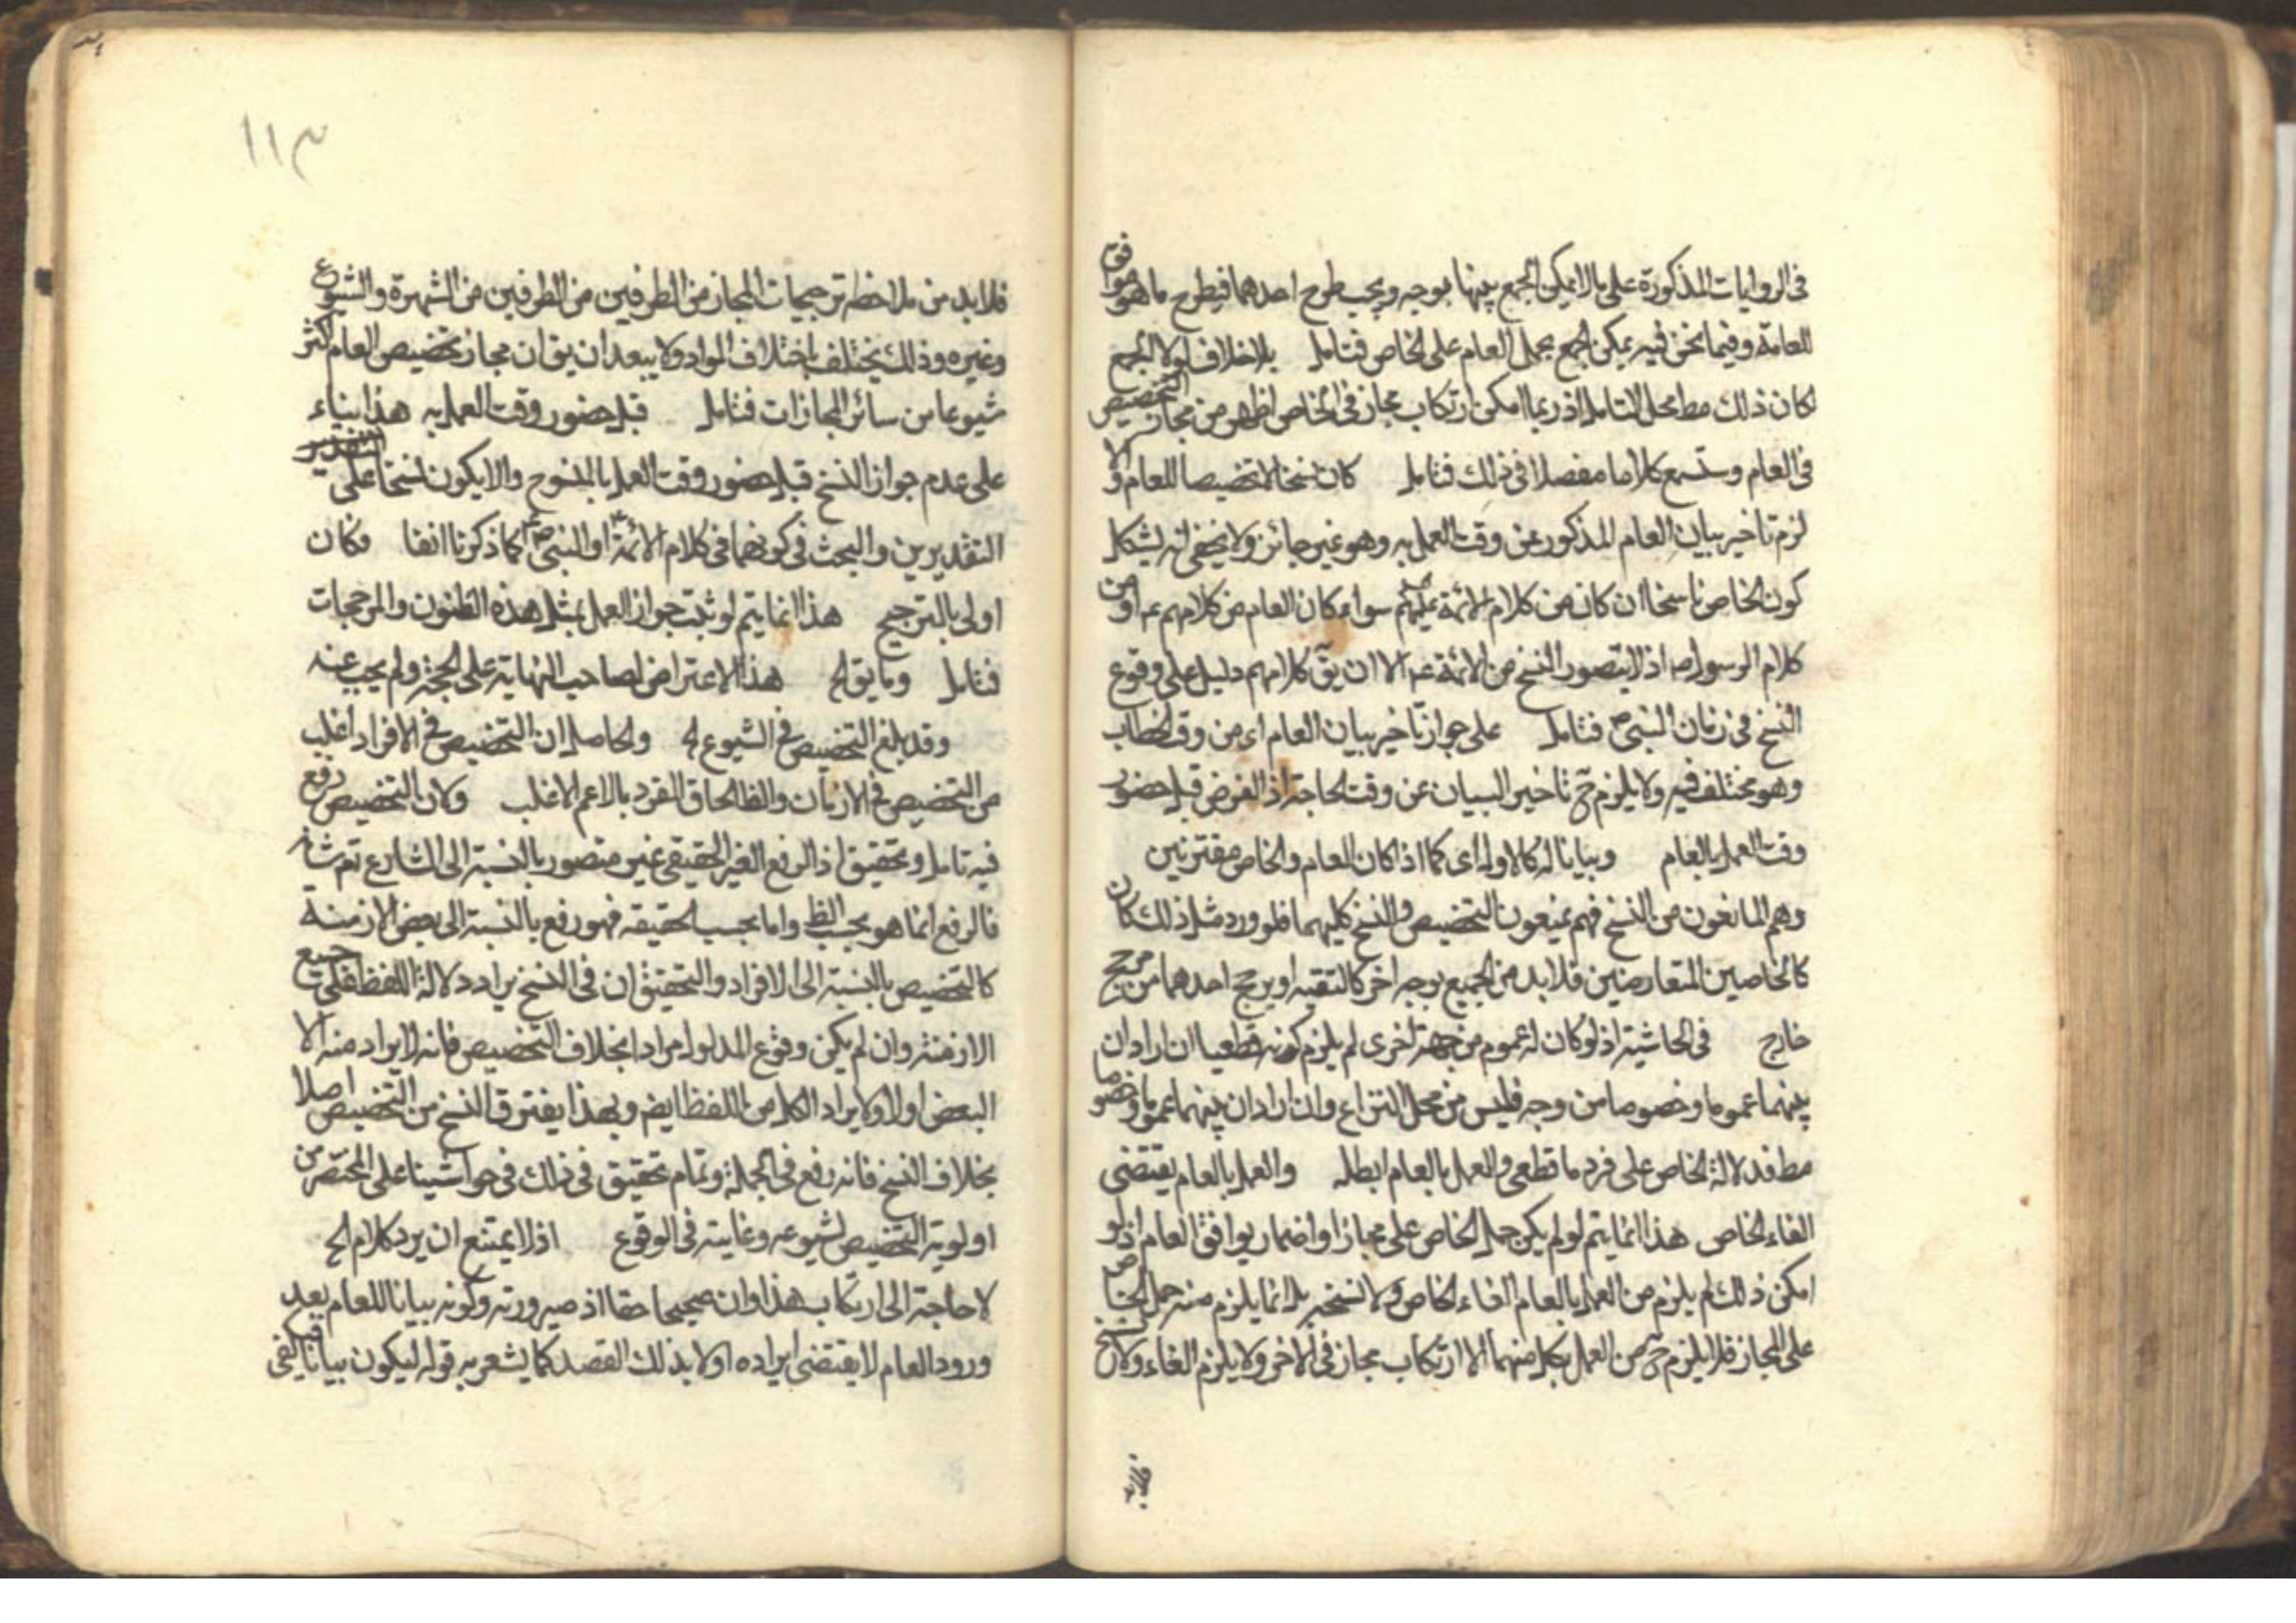 فى الروايات المذكورة على ما لا يمكن الجمع بينها بوجه ويجب طرح احدهما فيطرح ما هو موافق
للعامة وفيما نحن فيه يمكن الجمع بحمل العام على الخاص فتامل بلا خلاف لولا الجمع
لكان ذلك مط محل التامل اذ ربما امكن ارتكاب مجاز فى الخاص اظهر من مجاز التخصيص
فى العام وستسمع كلاما مفصلا فى ذلك فتامل كان نسخا لا تخصيصا للعام والا
لزم تاخير بيان العام المذكور عن وقت العمل به وهو غير جائز ولا يخفى انه يشكل
كون الخاص ناسخا ان كان من كلام الائمة عليهم سواء كان العام من كلامهم عم او من
كلام الرسول ص اذ لا يتصور النسخ من الائمة عم الا ان يق كلامهم دليل على وقوع
النسخ فى زمان النبى ص فتامل على جواز تاخير بيان العام اى من وقت الخطاب
وهو مختلف فيه ولا يلزم ح تاخير البيان عن وقت الحاجة اذ الفرض قبل حضور
وقت العمل بالعام وبيانا له كالاول اى كما اذا كان العام والخاص مقترنين
وهم المانعون من النسخ فهم يمنعون التخصيص والنسخ كليهما فلو ورد مثل ذلك كان
كالخاصين المتعارضين فلا بد من الجميع بوجه اخر كالتقيه او يرجح احدهما من مرجح
خارج فى الحاشية اذ لو كان له عموم من جهة اخرى لم يلزم كونه قطعيا ان اراد ان
بينهما عموما وخصوصا من وجه فليس من محل النزاع وان اراد ان بينهما عموما وخصوصا
مط فدلالة الخاص على فرد ما قطعى والعمل بالعام ابطله والعمل بالعام يقتضى
الغاء الخاص هذا انما يتم لو لم يكن حمل الخاص على مجاز او اضمار يوافق العام اذ لو
امكن ذلك لم يلزم من العمل بالعام الغاء الخاص ولا نسخه بل انما يلزم منه حمل الخاص
على المجاز فلا يلزم ح من العمل بكل منهما الا ارتكاب مجاز فى الاخر ولا يلزم الغاء ولا نسخ
فلا بد
١١٣
فلا بد من ملاحظة ترجيحات المجاز من الطرفين من الطرفين من الشهرة والشيوع
وغيره وذلك يختلف باختلاف المواد ولا يبعد ان يق ان مجاز تخصيص العام اكثر
شيوعا من سائر المجازات فتامل قبل حضور وقت العمل به هذا بناء
على عدم جواز النسخ قبل حضور وقت العمل بالمنسوخ والا يكون نسخا على التقدير
التقديرين والبحث فى كونهما فى كلام الائمة او النبى ص كما ذكرنا انفا فكان
اولى بالترجيح هذا انما يتم لو ثبت جواز العمل بمثل هذه الظنون والمرجحات
فتامل وما يق الخ هذا الاعتراض لصاحب النهاية على الحجة ولم يجب عنه
وقد بلغ التخصيص فى الشيوع الخ والحاصل ان التخصيص فى الافراد اغلب
من التخصيص فى الازمان والظ الحاق الفرد بالاعم الاغلب ولان التخصيص رفع
فيه تامل وتحقيق اذ الرفع الغير الحقيقى غير متصور بالنسبة الى الشارع تعم شانه
فالرفع انما هو بحسب الظ واما بحسب الحقيقه فهو رفع بالنسبة الى بعض الازمنة
كالتخصيص بالنسبة الى الافراد والتحقيق ان فى النسخ يراد دلالة اللفظ على جميع
الازمنة وان لم يكن وقوع المدلول مرادا بخلاف التخصيص فانه لا يراد منه الا
البعض اولا ولا يراد الكل من اللفظ ايضم وبهذا يفترق النسخ من التخصيص اصلا
بخلاف النسخ فانه رفع فى الجملة وتمام تحقيق فى ذلك فى حواشينا على المختصر من
اولوية التخصيص لشيوعه وغايته فى الوقوع اذ لا يمتنع ان يرد كلام الخ
لا حاجة الى ارتكاب هذا وان صحيحا حقا اذ صيرورته وكونه بيانا للعام بعد
ورود العام لا يقتضى ايراده اولا بذلك القصد كما يشعر به قوله ليكون بيانا فيكفى